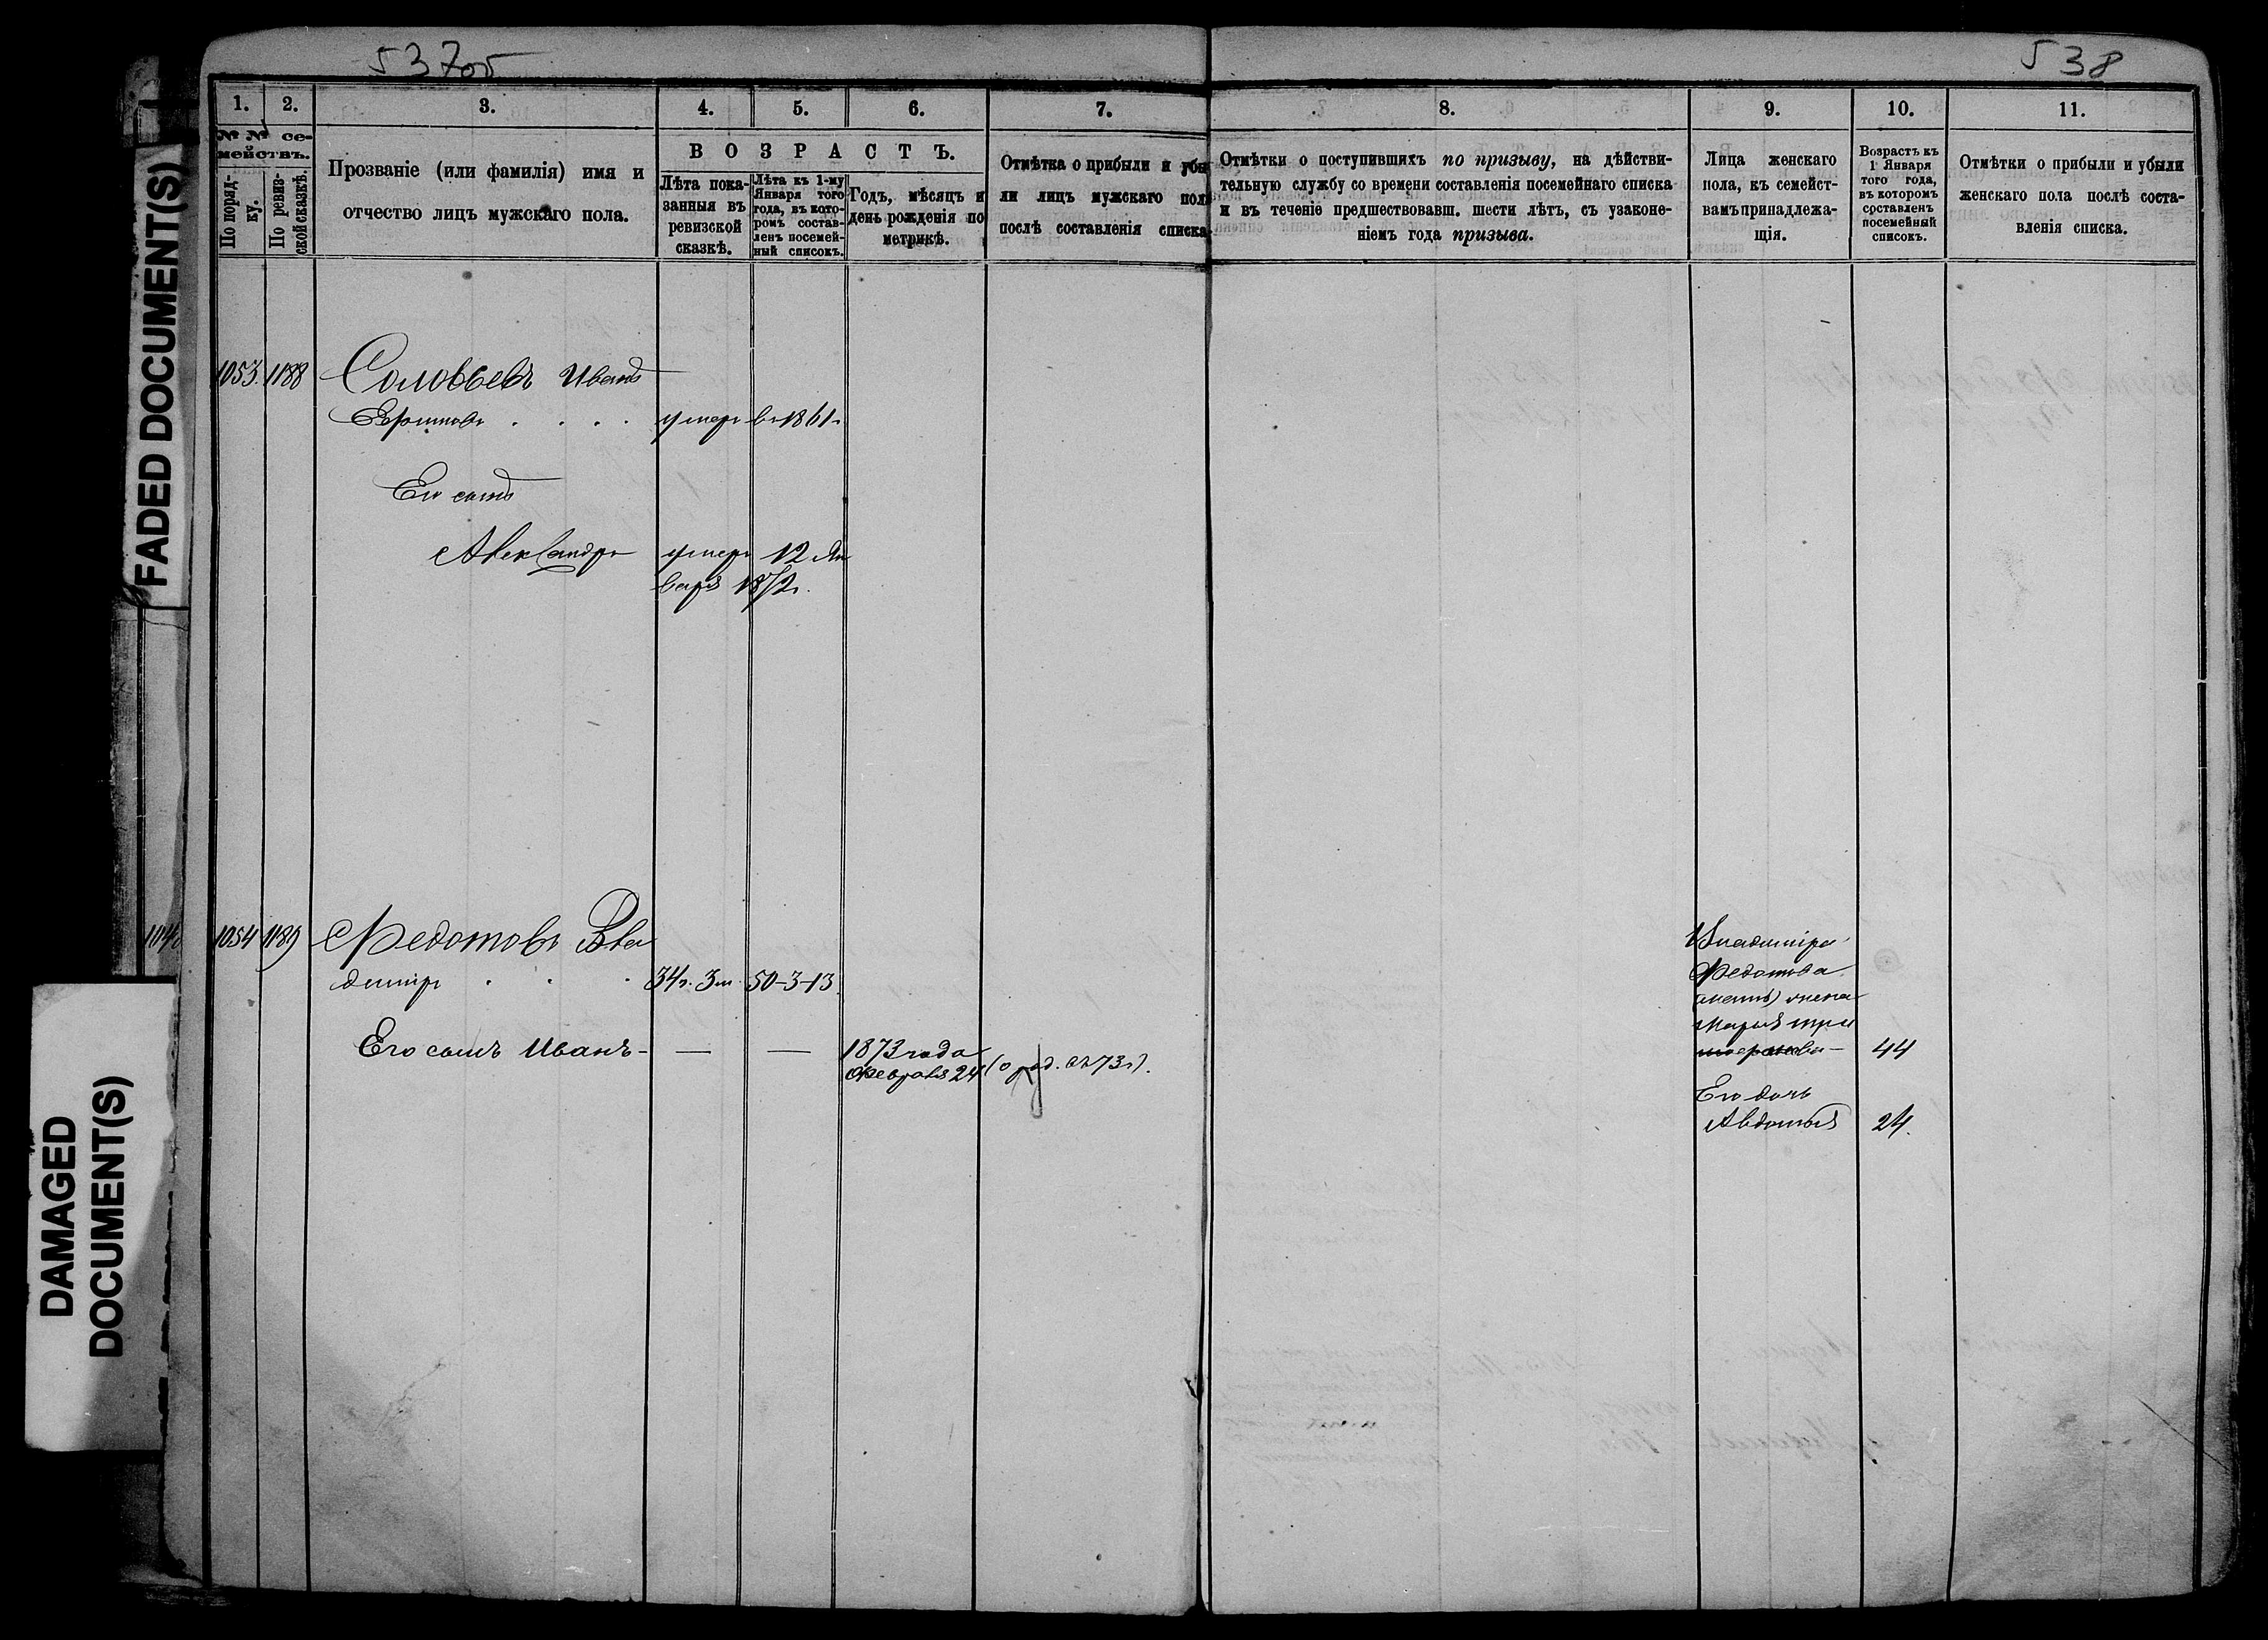 537об
538
FADED DOCUMENT(S)
DAMAGED
DOCUMENT(S)
1. 2. 3. 4. 5. 6. 7. 8. 9. 10. 11.
№ № се-
мействъ.
По поряд-
ку.
По ревиз-
ской сказкѣ.
Прозваніе (или фамилія) имя и
отчество лицъ мужскаго пола.
ВОЗРАСТЪ.
Лѣта пока-
занныя въ
ревизской
сказкѣ.
Лѣта къ 1-му
Января того
года, въ кото-
ромъ состав-
ленъ посемей-
ный списокъ.
Годъ, мѣсяцъ и
день рожденія по
метрикѣ.
Отмѣтка о прибыли и убы
ли лицъ мужскаго пола
послѣ составленія списка
Отмѣтки о поступившихъ по призыву, на дѣйстви-
тельную службу со времени составленія посемейнаго списка
и въ теченіе предшествовавш. шести лѣтъ, съ узаконе-
ніемъ года призыва.
Лица женскаго
пола, къ семейст-
вамъ принадлежа-
щія.
Возрастъ къ
1 Января
того года,
въ которомъ
составленъ
посемейный
списокъ.
Отмѣтки о прибыли и убыли
женскаго пола послѣ соста-
вленія списка.
1053. 1188 Соловьевъ Иванъ
умеръ въ 1861г
Его сынъ
Александръ умеръ 12 Ян
варя 1872г.
1054 1189 Федотовъ Вла
димiръ 34г. 3м. 50-3-13
Его сынъ Иванъ — — — 1873 года
Февраля 24
Владимiра
Федотова
жена
Марья
44
Его дочь
Авдотья 24.